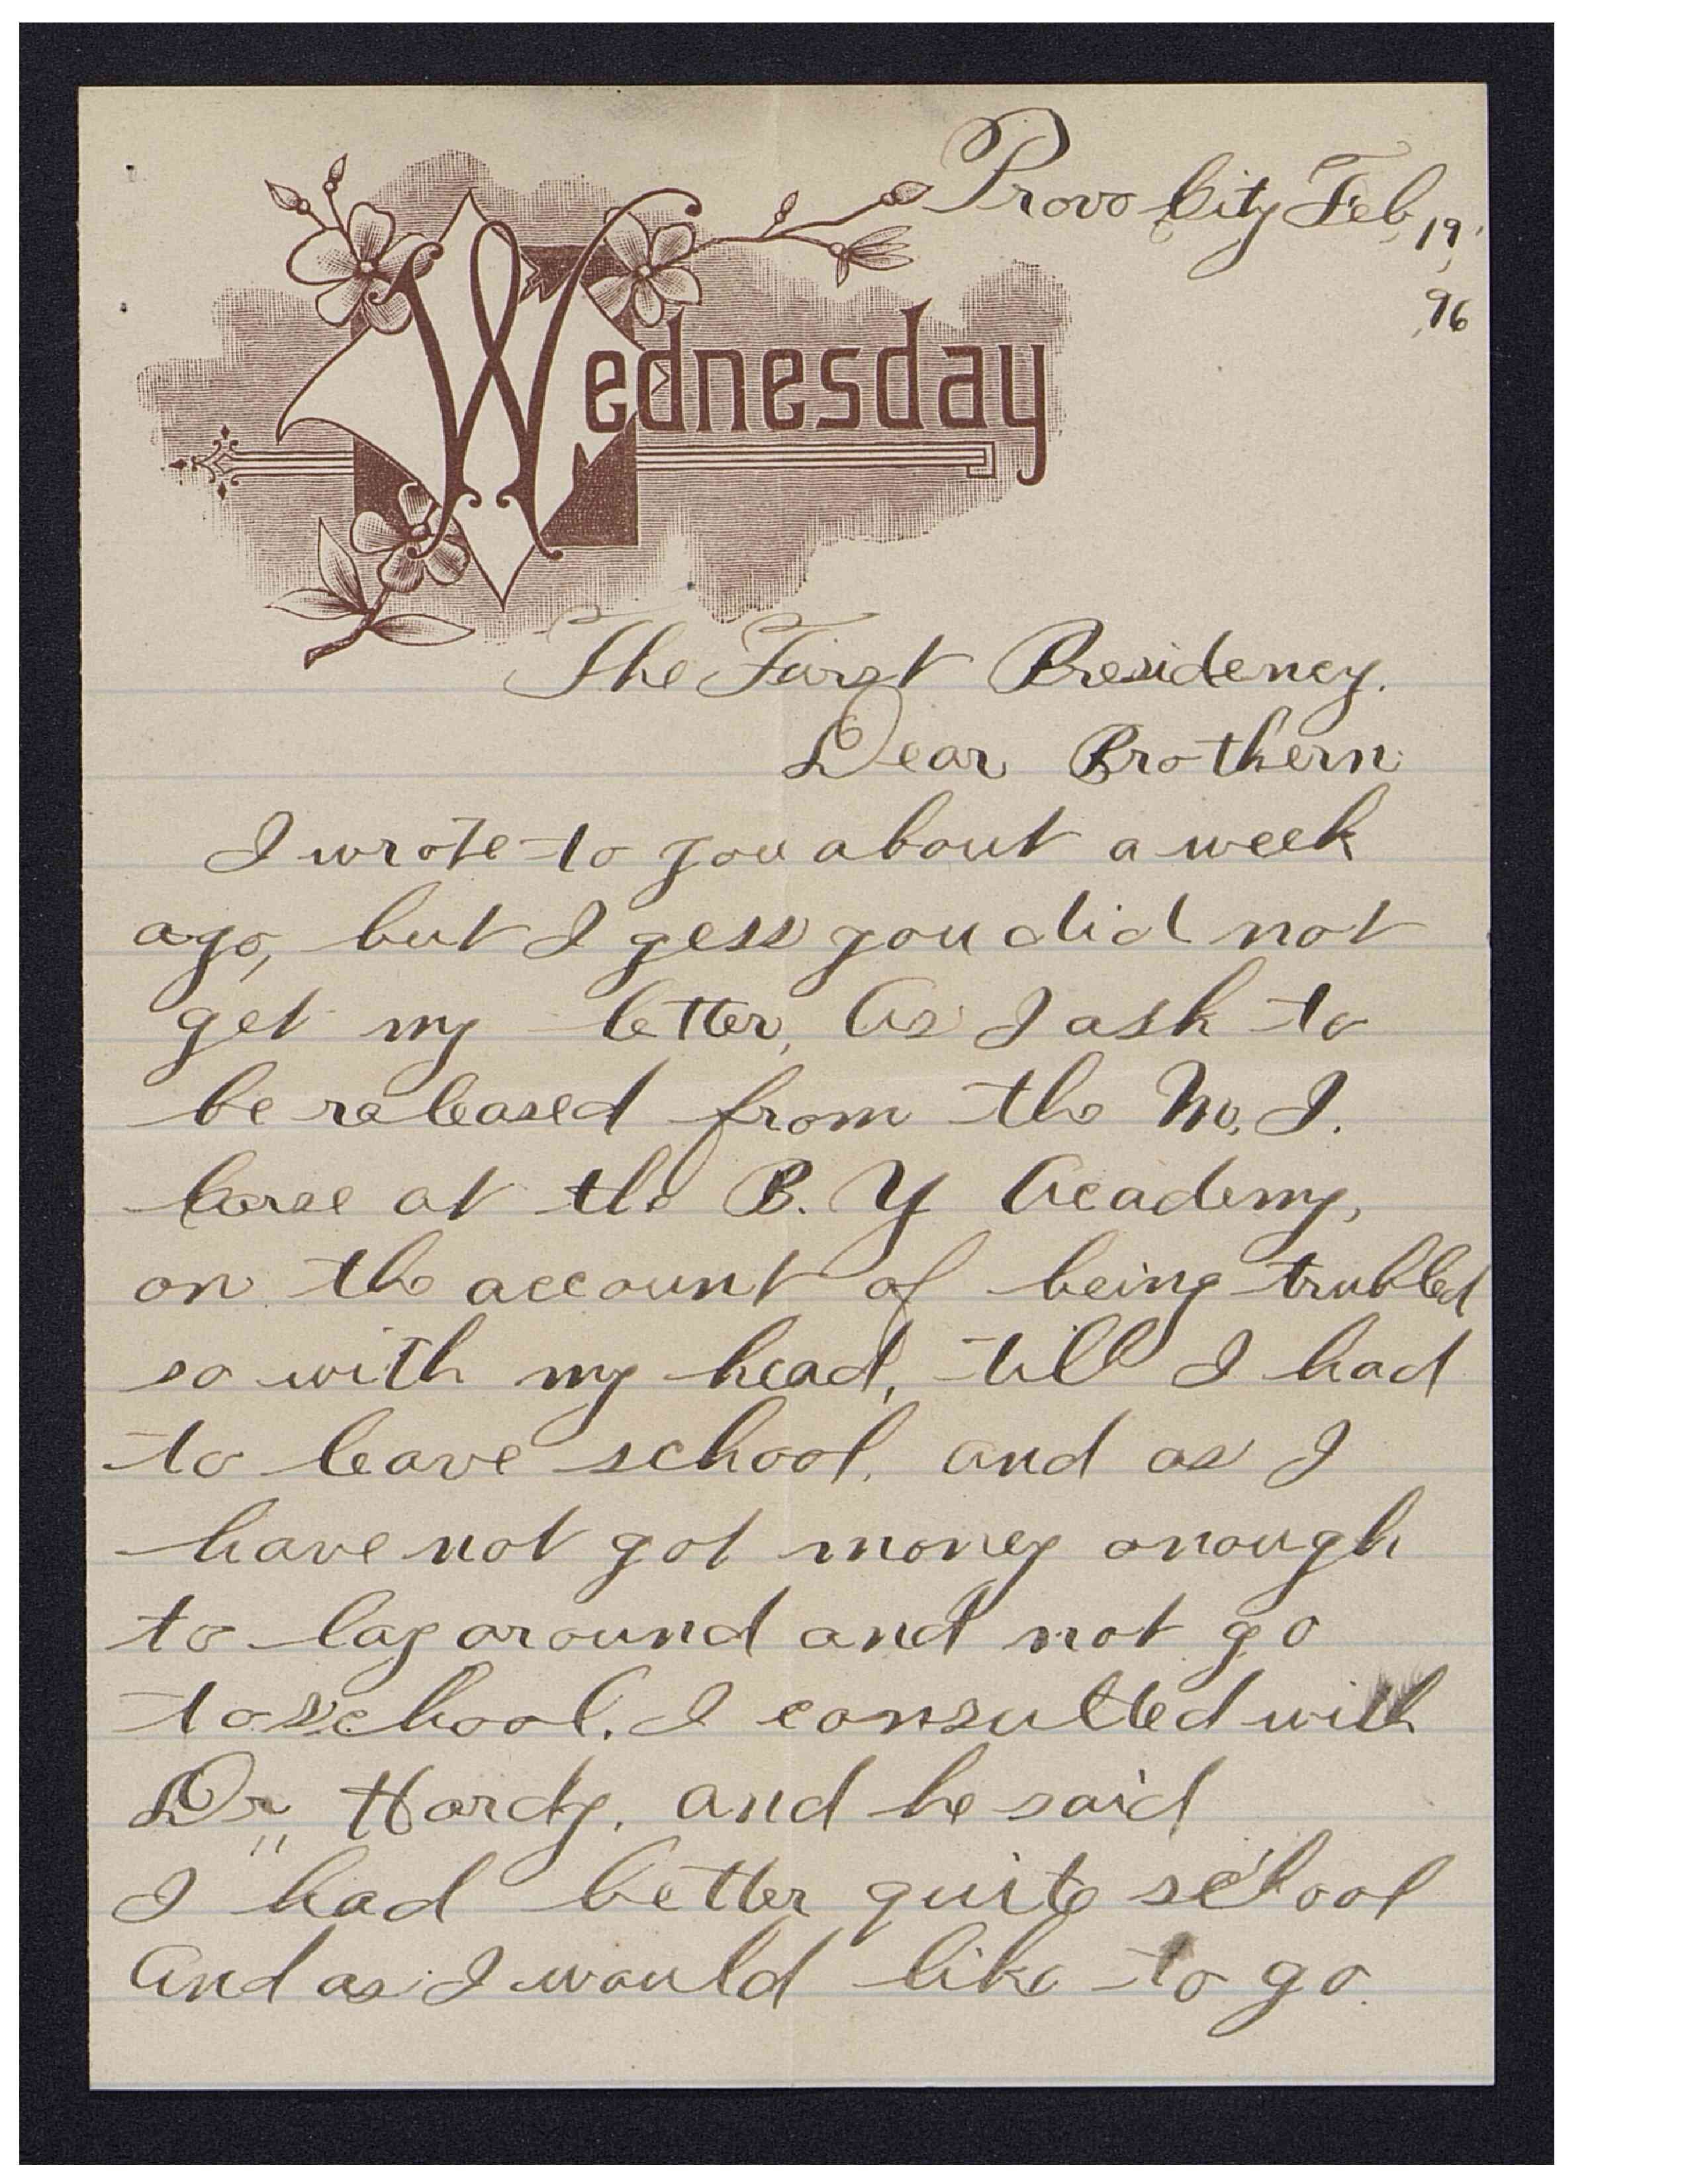 Provo City Feb, 19,
96
Wednesday
The First Presidency.
Dear Brothern
I wrote to you about a week
ago, but I gess you did not
get my letter, As I ask to
be released from the M. I.
Corse at the B. Y Academy,
on the account of being trubbled
so with my head, till I had
to leave school. and as I
have not got money enough
to lay around and not go
to school. I consulted with
Dr,, Hardy. and he said
I had better quite school
and as I would like to go.